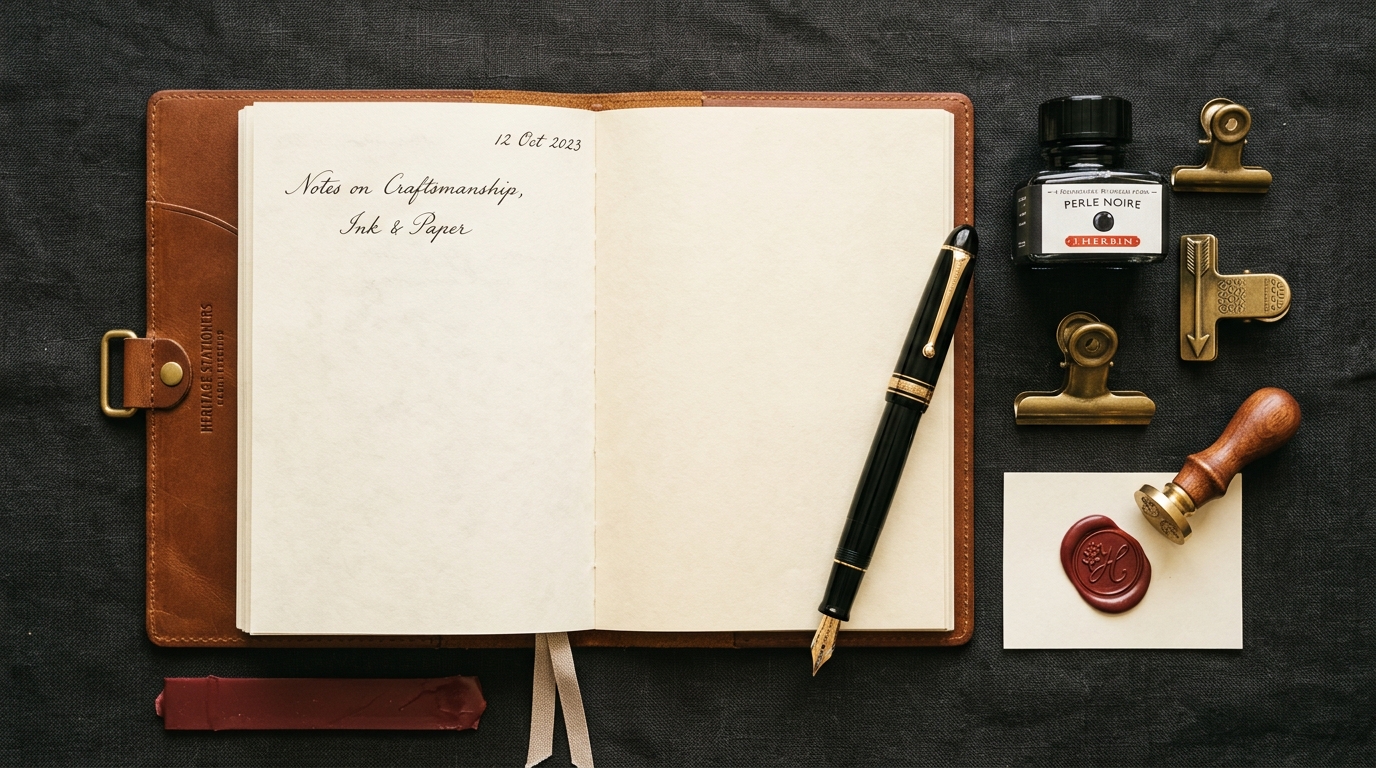 12 Oct 2023
Notes on Craftsmanship,
Ink & Paper
HERITAGE STATIONERS
PERLE NOIRE
J. HERBIN
H